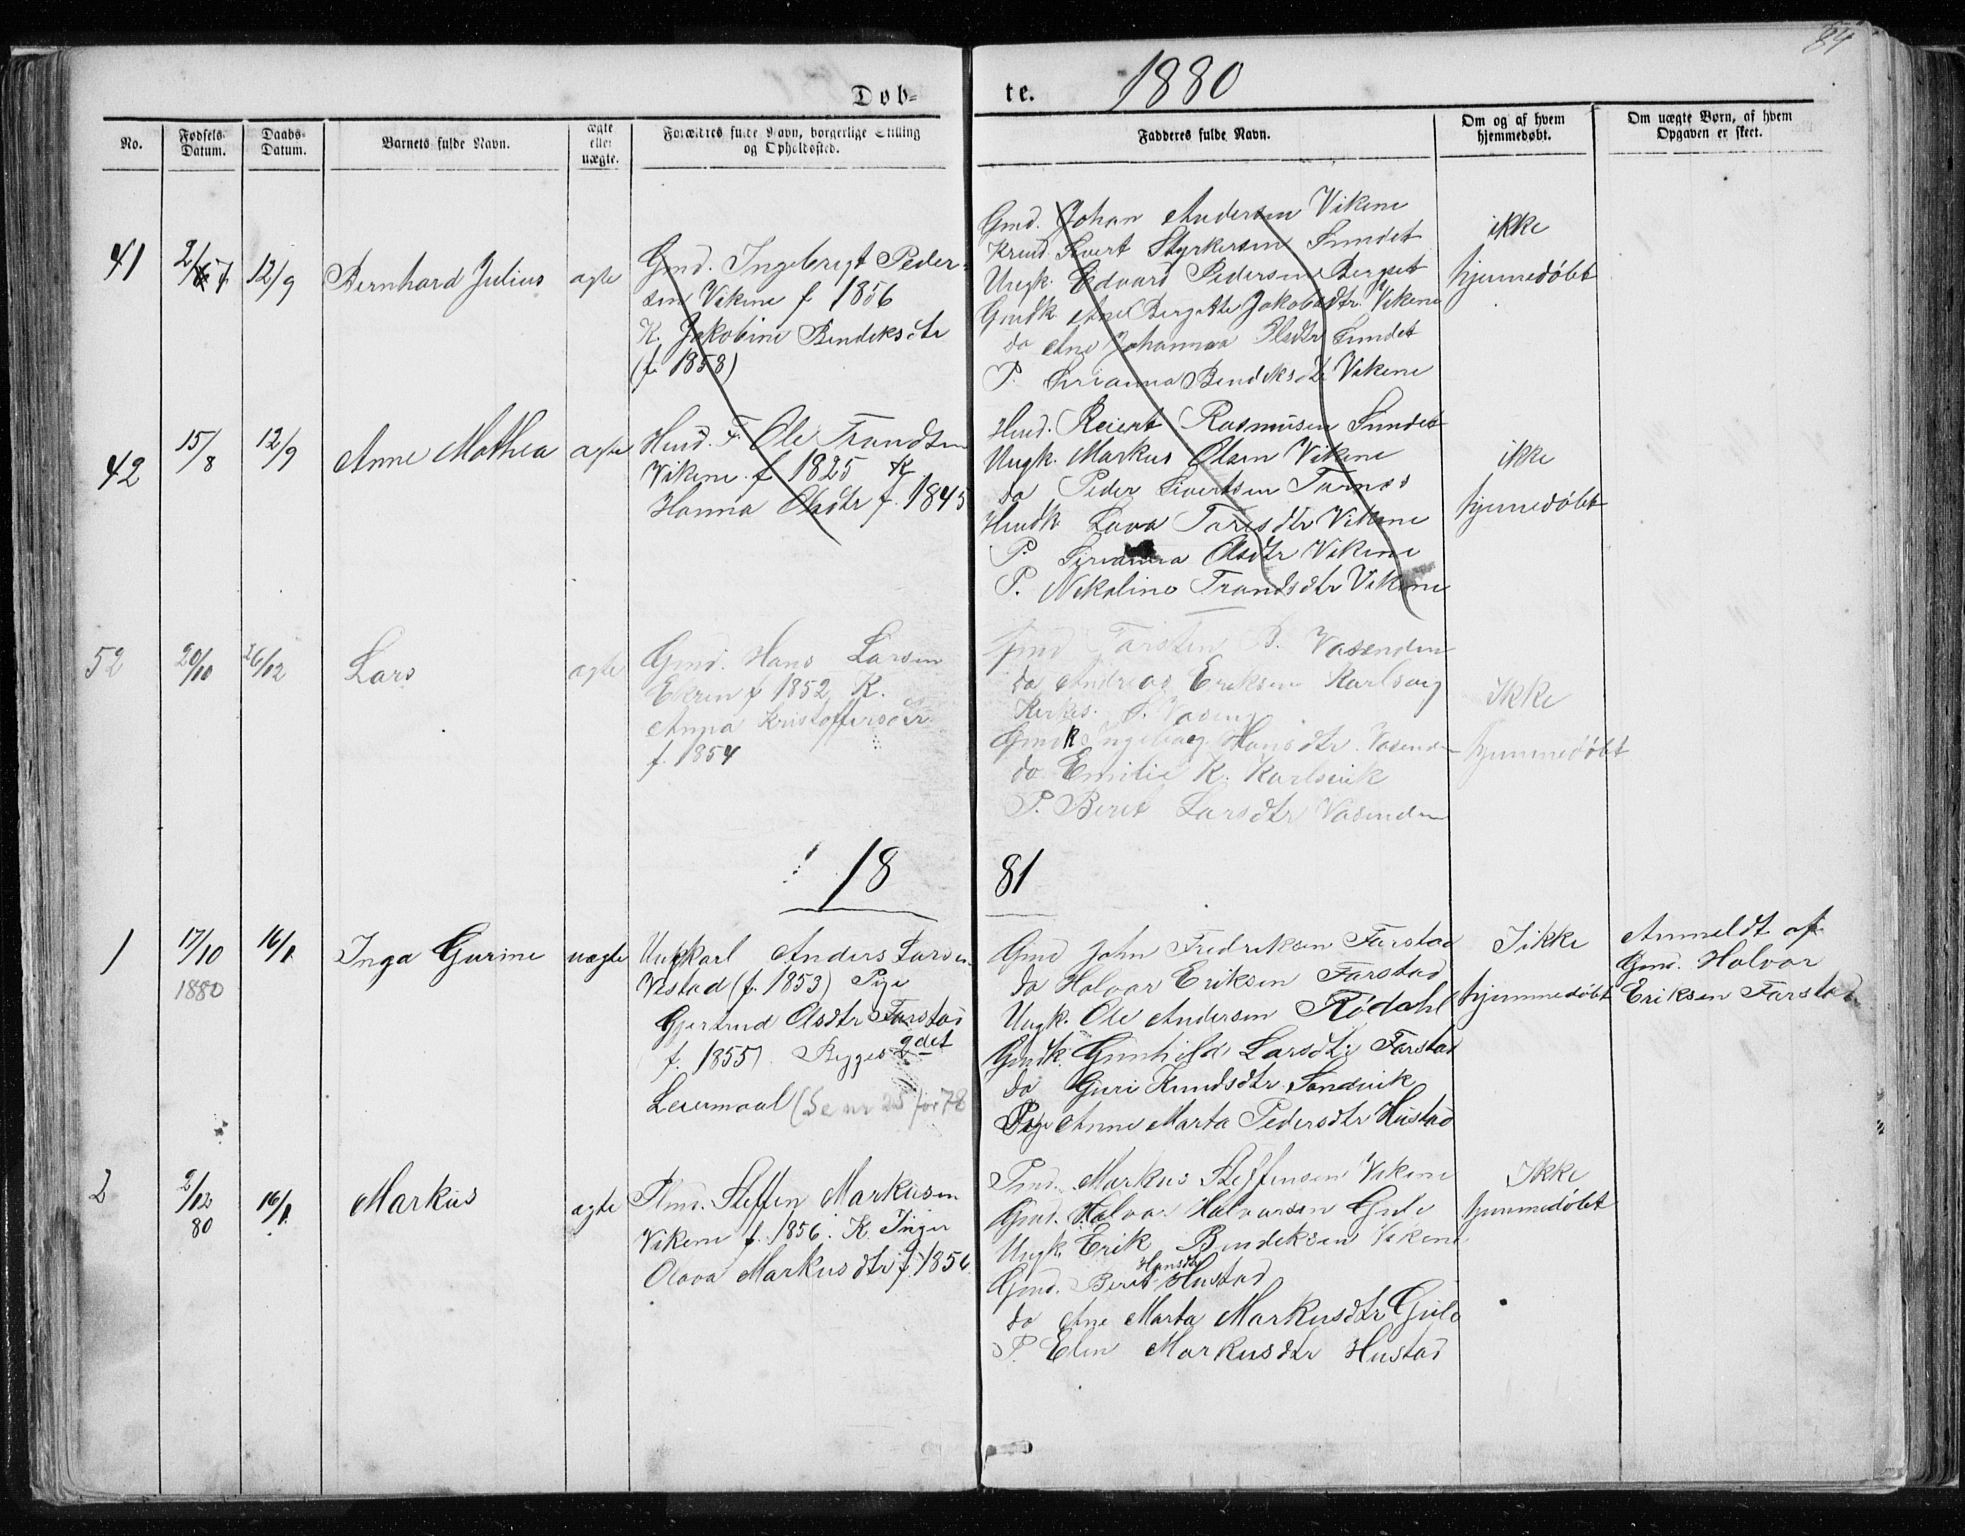 84
Døb-
te. 1880
No.
Fødsels-
Datum.
Daabs-
Datum.
Barnets fulde Navn.
ægte
eller
uægte.
Forældres fulde Navn, borgerlige Stilling
og Opholdssted.
Fadderes fulde Navn.
Om og af hvem
hjemmedøbt.
Om uægte Børn, af hvem
Opgaven er skeet.
41
12/9
Bernhard Julius
ægte
Gmd. Ingebrigt Peder-
sen Vikene f 1856
K. Jakobine Bendeksdtr
(f. 1858)
Gmd. Johan Andersen Vikene
Sivert Styrkersen Sundet
Ungk. Edvard Pedersen Bergset
Gmdk Ane Bergitte Jakobsdtr Vikene
do Ane Johanna Olsdtr Sundet
P. Birianna Bendeksdtr Vikene
ikke
hjemmedøbt
42
15/8
12/9
Anne Mathea
ægte
Husd. F. Ole Trondsen
Vikene f 1825 K
Hanna Olsdtr f. 1845
Husd. Reiert Rasmusen Sundet
Ungk. Markus Olsen Vikene
do Peder Sivertsen Tornes
Husdk Lava Toresdtr Vikene
P. Olsdtr Vikene
P. Nikoline Trondsdtr Vikene
ikke
hjemmedøbt
52
20/10
26/12
Lars
ægte
Gmd. Hans Larsen
Ekren f 1852 K.
Anna Kristoffersdtr
f. 1854
Gmd Torsten B. Vasenden
do Andreas Eriksen Karlsvig
Kirkes.
Gmdk Ingeborg Hansdtr. Vasend
do Emilie K. Karlsvik
P. Berit Larsdtr Vasenden
Ikke
hjemmedøbt
18
81
1
17/10
1880
16/1
Inga Gurine
uægte
Ungkarl Anders Larsen
Vestad (f. 1853) Pige
Gjertrud Olsdtr Farstad
f. 1855) Begges 2det
Leiermaal (Se nr 25 for 78
Gmd John Fredriksen Farstad
do Halvor Eriksen Farstad
Ungk. Ole Andersen Rødahl
Gmdk Gunhild Larsdtr Farstad
do Guri Knudsdtr Sandvik
Pige Anne Marta Pedersdtr Hustad
Ikke
hjemmedøbt
Anmeldt af
Gmd. Halvor
Eriksen Farstad
2
2/12
80
16/1
Markus
ægte
Steffen Markusen
Vikene f. 1856. K. Inger
Olava Markusdtr f. 1856
Markus Steffensen Vikene
Gmd. Halvor Halvorsen Gule
Ungk. Erik Bendeksen Vikene
Hansdtr
Gmd. Berit Hustad
do Ane Marta Markusdtr Gule
P. Elen Markusdtr Hustad
Ikke
hjemmedøbt